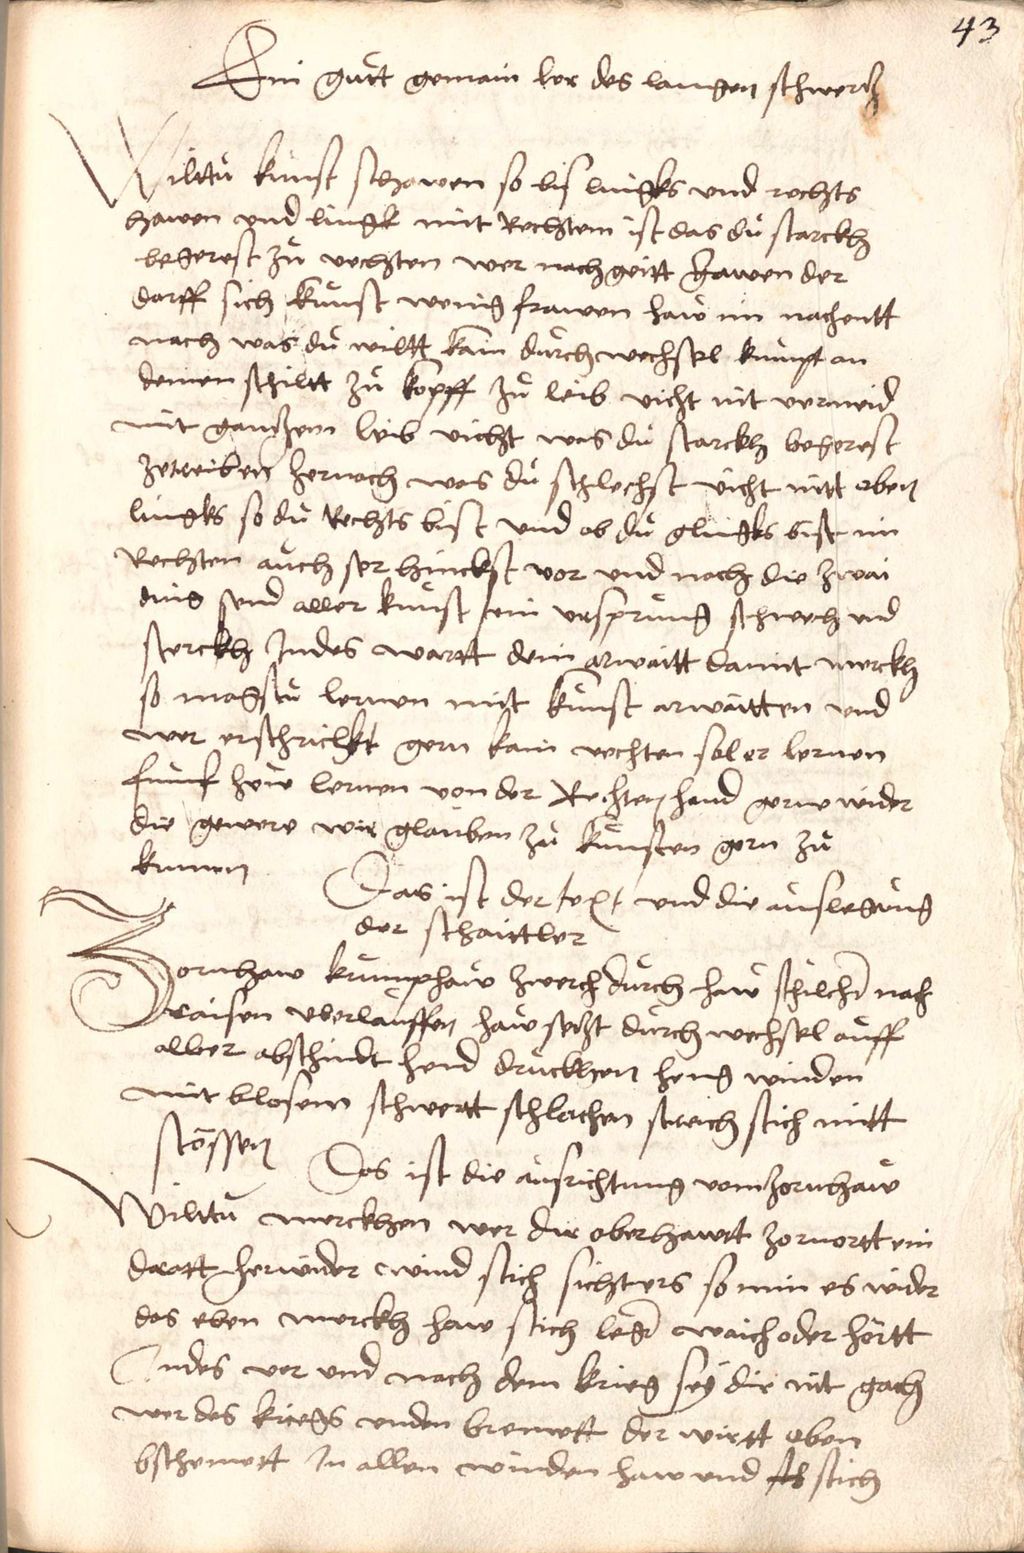 43
Ein gůtt gemain ler des langen schwertz
Wilttu kunst schawen so bis lingks und rechts
hawen und lingk mit Rechtem ist das dů starckh
begerest zů vechten wer nach geitt hawen der
darff sich kunst wenig frawen haw im nachentt
nach was dů wiltt kain důrchwechsel kumpt an
deinen schiltt zů kopff zů leib vicht nit vermeid
mit gantzem leib vicht was dů starckh begerest
zetreiben hernoch was dů schlechst vicht nitt oben
lingks so dů Rechts bist und ob dů glingks bist im
Rechten aůch ser hinckst vor und noch die zwai
ding send aller kůnst ein ursprůng schwech und
sterckh Indes wartt dein arwaitt damit merckh
so magstu lernen mit kůnst arwaitten und
wer erschrickt gern kain vechten sol er lernen
funff hew lernen von der Rechten hand gerwe wider
die gewere wir glauben zů kůnsten gern zů
kumen
Das ist der text und die aůslegůng
der schaittler
Zornhaw krumphaw zwerch důrch haw schilcher nach
Raisen uberlauffen haw setzt důrch wechsel aůff
alber abschindt hend drůckhen heng winden
mit blosem schwertt schlachen streich stich mitt
stössen
Das ist die aůsrichtung vom zornhaw
Wilttů merckhen wer dir oberhawtt zornortt ein
drott herwider wind stich sichters so nim es wider
das eben merckh haw stich leger waich oder hörtt
Indes vor und nach dem krieg sey dir nit gach
wer des kriegs unden bremett der wirtt oben
bschemett In allen winden haw und stich